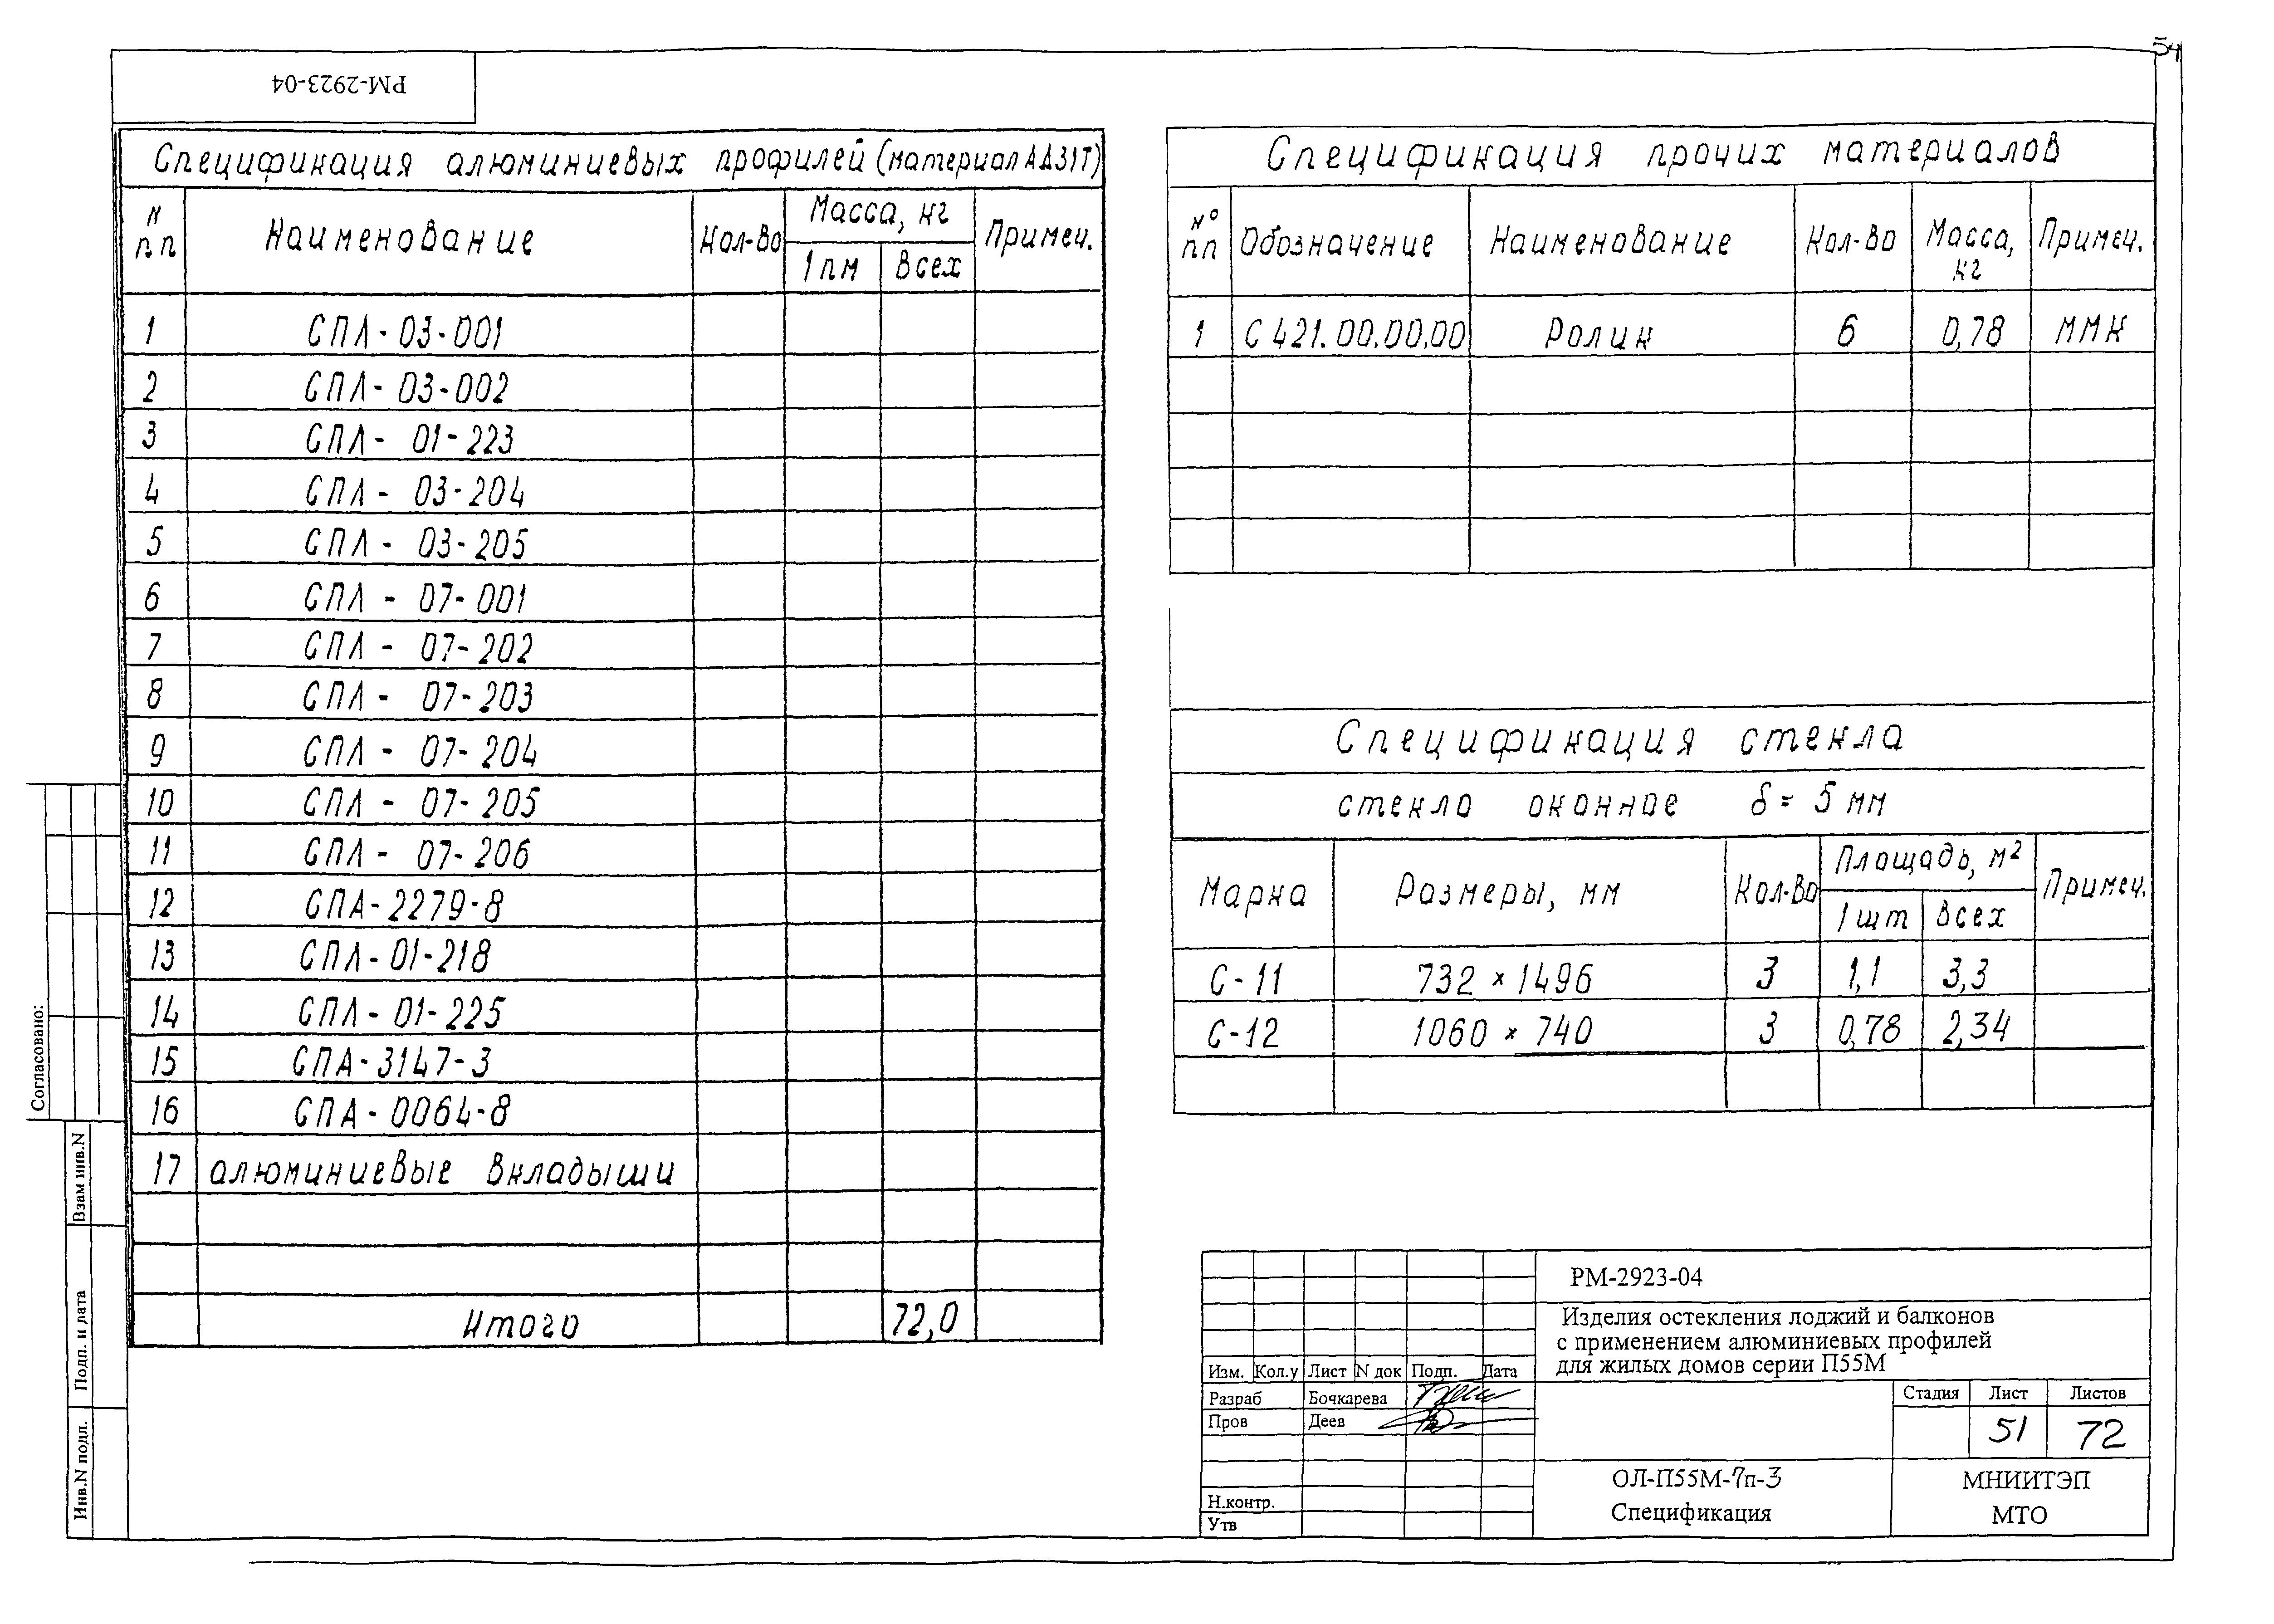 54
РМ-2923-04
Спецификация алюминиевых профилей (материал АД31Т)
N пп Наименование Кол-во Масса, кг Примеч.
1пм всех
1 СПЛ-03-001
2 СПЛ-03-002
3 СПЛ-01-223
4 СПЛ-03-204
5 СПЛ-03-205
6 СПЛ-07-001
7 СПЛ-07-202
8 СПЛ-07-203
9 СПЛ-07-204
10 СПЛ-07-205
11 СПЛ-07-206
12 СПА-2279-8
13 СПЛ-01-218
14 СПЛ-01-225
15 СПА-3147-3
16 СПА-0064-8
17 алюминиевые вкладыши
Итого 72,0
Спецификация прочих материалов
№ пп Обозначение Наименование Кол-во Масса, кг Примеч.
1 С421.00.00.00 Ролик 6 0,78 ММК
Спецификация стекла
стекло оконное δ = 5 мм
Марка Размеры, мм Кол-во Площадь, м² Примеч.
1шт всех
С-11 732 × 1496 3 1,1 3,3
С-12 1060 × 740 3 0,78 2,34
Согласовано:
Взам инв.N
Подп. и дата
Инв.N подл.
РМ-2923-04
Изделия остекления лоджий и балконов
с применением алюминиевых профилей
для жилых домов серии П55М
Изм. Кол.у Лист N док Подп. Дата
Разраб Бочкарева
Пров Деев
Н.контр.
Утв
Стадия Лист Листов
51 72
ОЛ-П55М-7п-3
Спецификация
МНИИТЭП
МТО